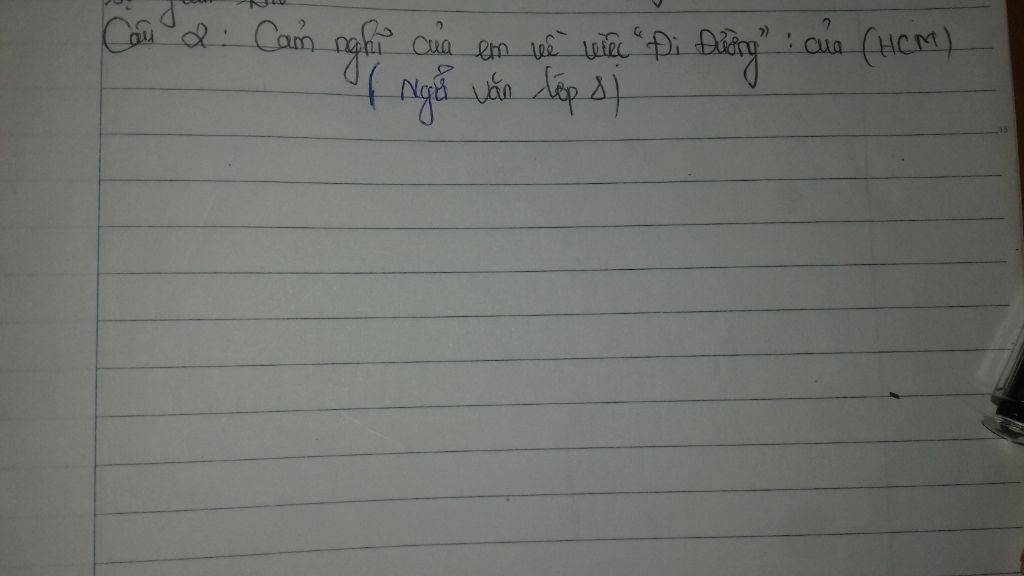 Câu 2: Cảm nghỉ của em về việc "Đi Đường": của (HCM)
( Ngữ văn lớp 8)
15